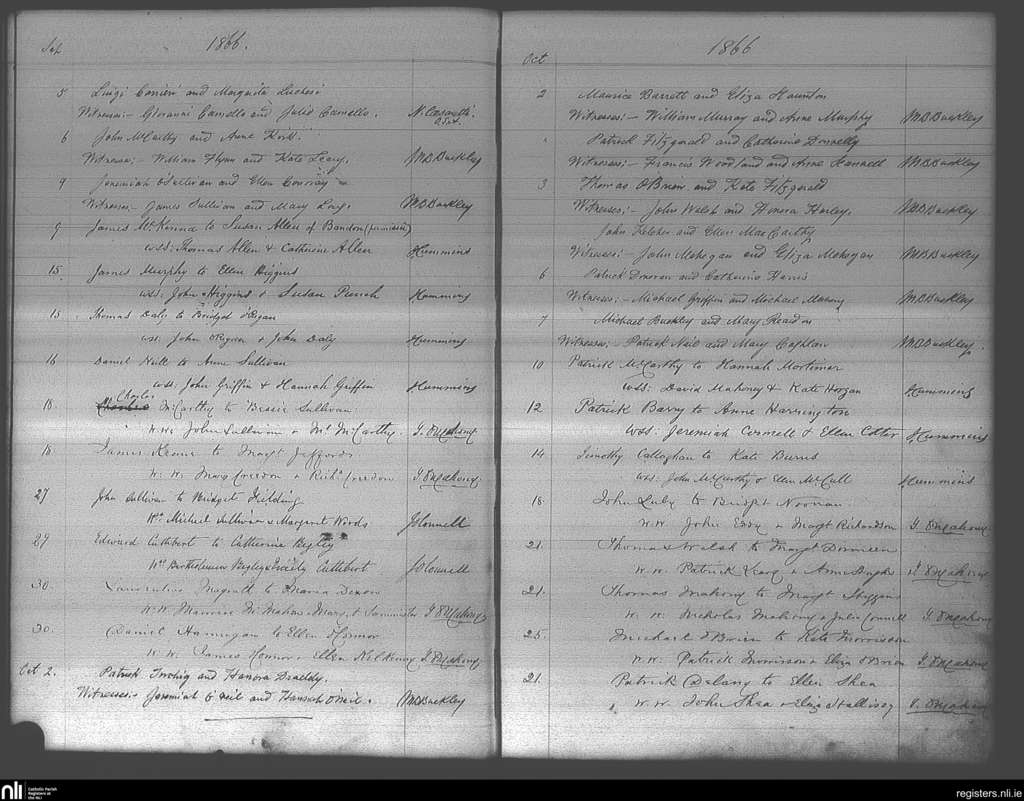 Sep 1866.
5 Luigi Carrieri and Margarita Luchesi
Witnesses:- Giovanni Camello and Julio Camello. N.
6 John McCarthy and Anne
Witnesses:- William Flynn and Kate Leary. MB Buckley
9 Jeremiah O'Sullivan and Ellen Conway
Witnesses:- James Sullivan and Mary Long. MB Buckley
9 James McKenna to Susan Allen of Bandon
wss: Thomas Allen & Catherine Allen Hummins
15. James Murphy to Ellen Higgins
wss. John Higgins & Susan Hummins
15 Thomas Daly to Bridget O'Ryan
wss. John O'Ryan & John Daly Hummins
16 Daniel to Anne Sullivan
wss. John Griffin & Hannah Griffin Hummins
18. Charles McCarthy to Bessie Sullivan
W.W. John Sullivan & McCarthy. J. O'Mahony
18. James to Margt Jeffords
W. W. Mary Creedon & Richd Creedon J. O'Mahony
27 John Sullivan to Bridget Fielding
Ws Michael Sullivan & Margaret Woods
29 Edward Cuthbert to Catherine Begley
Ws Bartholomew Begley & Cuthbert
30. to Maria Dixon
W.W. Maurice McMahon & J. O'Mahony
30. Daniel Hannigan to Ellen O'Connor
W. W. James Connor & Eliza Kilkenny J. O'Mahony
Oct 2. Patrick and Hanora
Witnesses:- Jeremiah O'Neil and Hannah O'Neil. MB Buckley
Oct 1866
2 Maurice Barrett and Eliza
Witnesses:- William Murray and Anne Murphy MB Buckley
Patrick Fitzgerald and Catherine Donnelly
Witnesses:- Francis Woodland and Anne MB Buckley
3 Thomas O'Brien and Kate Fitzgerald
Witnesses:- John Walsh and Honora Hurley. MB Buckley
John and Ellen MacCarthy
Witnesses:- John Mehegan and Eliza Mehegan MB Buckley
6 Patrick Donovan and Catherine Harris
Witnesses:- Michael Griffin and Michael Mahony MB Buckley
7 Michael Buckley and Mary Reardon
Witnesses:- Patrick Neil and Mary Coghlan MB Buckley.
10 Patrick McCarthy to Hannah Mortimer
wss: David Mahony & Kate Horgan Hummins
12. Patrick Barry to Anne Harrington
wss: Jeremiah Connell & Ellen Cotter Hummins
14 Timothy Callaghan to Kate Burns
wss. John McCarthy & Ellen McCall Hummins
18 John Luby to Bridget Noonan
W.W. John & Margt Richardson J. O'Mahony
21. Thomas Walsh to Margt
W. W. Patrick Leary & Anne J. O'Mahony
21. Thomas Mahony to Margt Higgens
W. W. Nicholas Mahony & Julia Connell J. O'Mahony
25. Michael O'Brien to Kate Morrisson
W.W. Patrick Morrisson & Eliza O'Brien J. O'Mahony
21. Patrick Delany to Ellen Shea
W. W. John Shea & Eliza Hallissey J. O'Mahony
nli Catholic Parish Registers at the NLI
registers.nli.ie